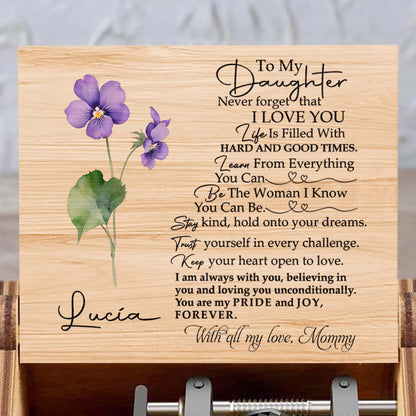 To My
Daughter
Never forget that
I LOVE YOU
Life Is Filled With
HARD AND GOOD TIMES.
Learn From Everything
You Can
Be The Woman I Know
You Can Be.
Stay kind, hold onto your dreams.
Trust yourself in every challenge.
Keep your heart open to love.
I am always with you, believing in
you and loving you unconditionally.
You are my PRIDE and JOY,
FOREVER.
With all my love, Mommy
Lucía